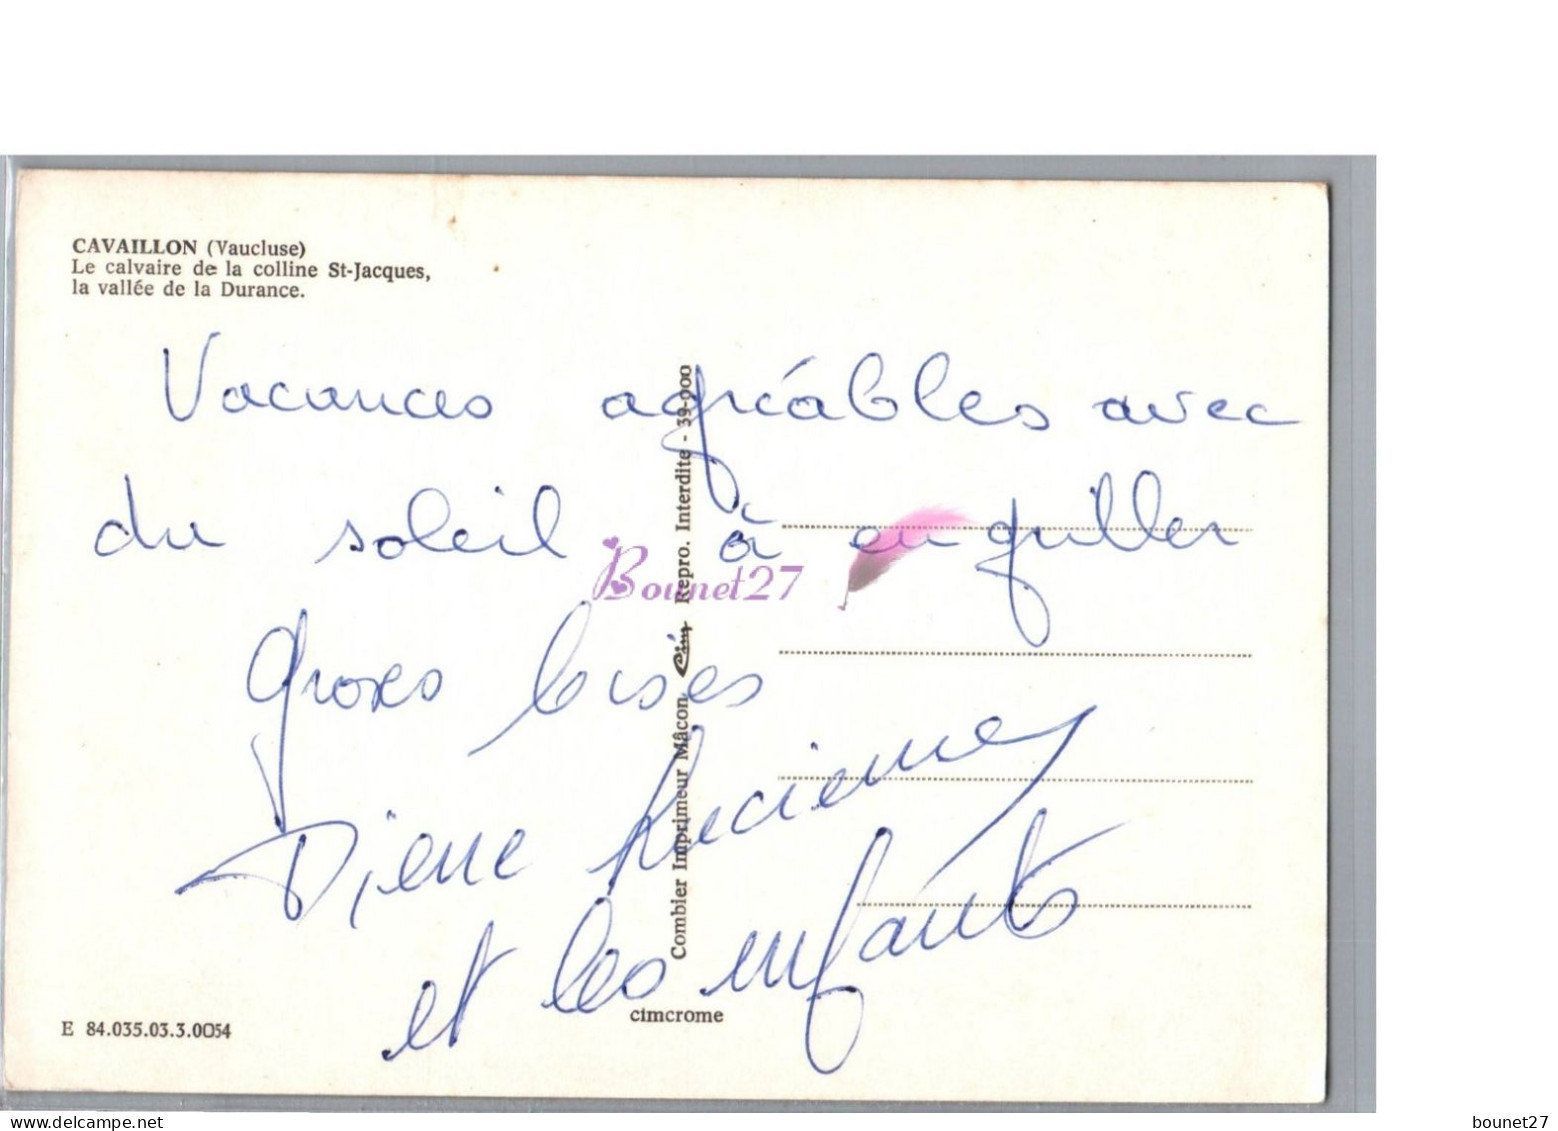 CAVAILLON (Vaucluse)
Le calvaire de la colline St-Jacques,
la vallée de la Durance.
Vacances agréables avec
du soleil à en griller
Groses bises
Pierre Lucienne
et les enfants
Combier Imprimeur Mâcon Cim Repro. Interdite - 39-900
Bounet27
cimcrome
E 84.035.03.3.0054
www.delcampe.net
bounet27